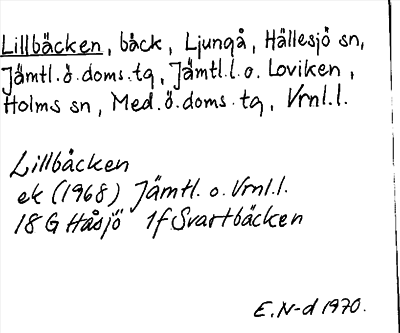 Lillbäcken, bäck, Ljungå, Hällesjö sn,
Jämtl.ö.doms.tg, Jämtl.l.o. Loviken,
Holms sn, Med.ö.doms.tg, Vrnl.l.
Lillbäcken
ek (1968) Jämtl. o. Vrnl.l.
18 G Håsjö 1f Svartbäcken
E.N-d 1970.